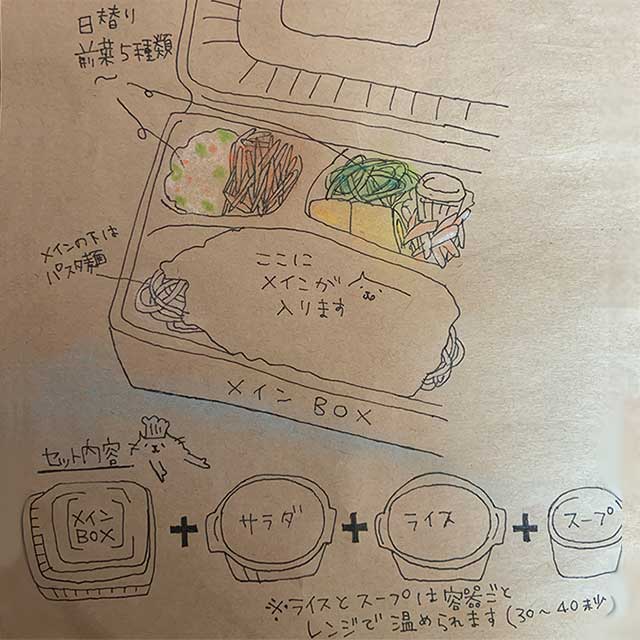 日替り
前菜5種類
〜
メインの下は
パスタ麺
ここに
メインが
入ります
メイン BOX
セット内容
メイン
BOX
+
サラダ
+
ライス
+
スープ
※ライスとスープは容器ごと
レンジで温められます(30〜40秒)